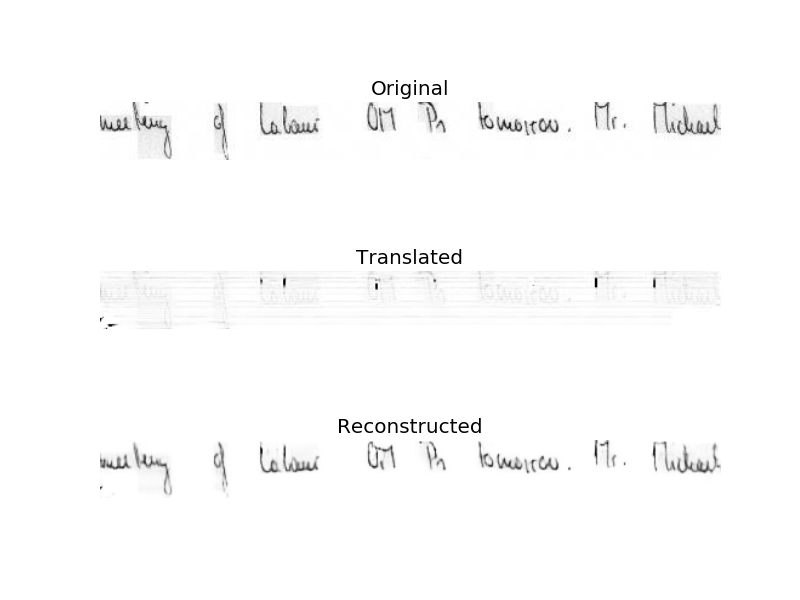 Original
meeting of Labour OM Ps tomorrow. Mr. Michael
Translated
tomorrow. Mr. Michael
Reconstructed
meeting of Labour OM Ps tomorrow. Mr. Michael